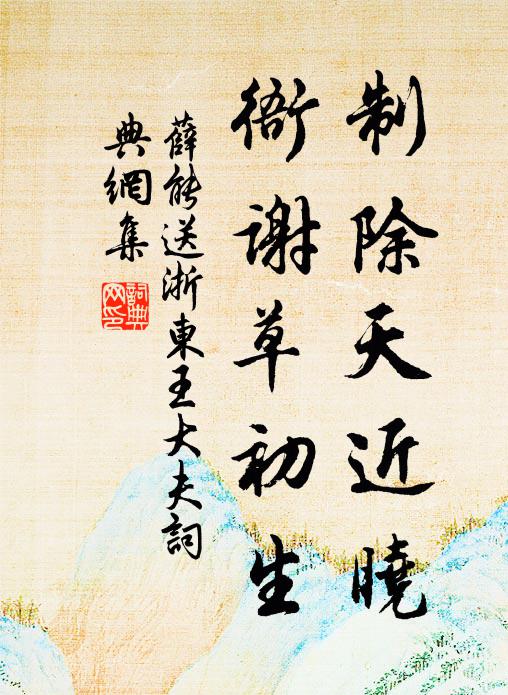 制除天近曉
衙謝草初生
薛能送浙東王大夫詞
典網集
詞典網印